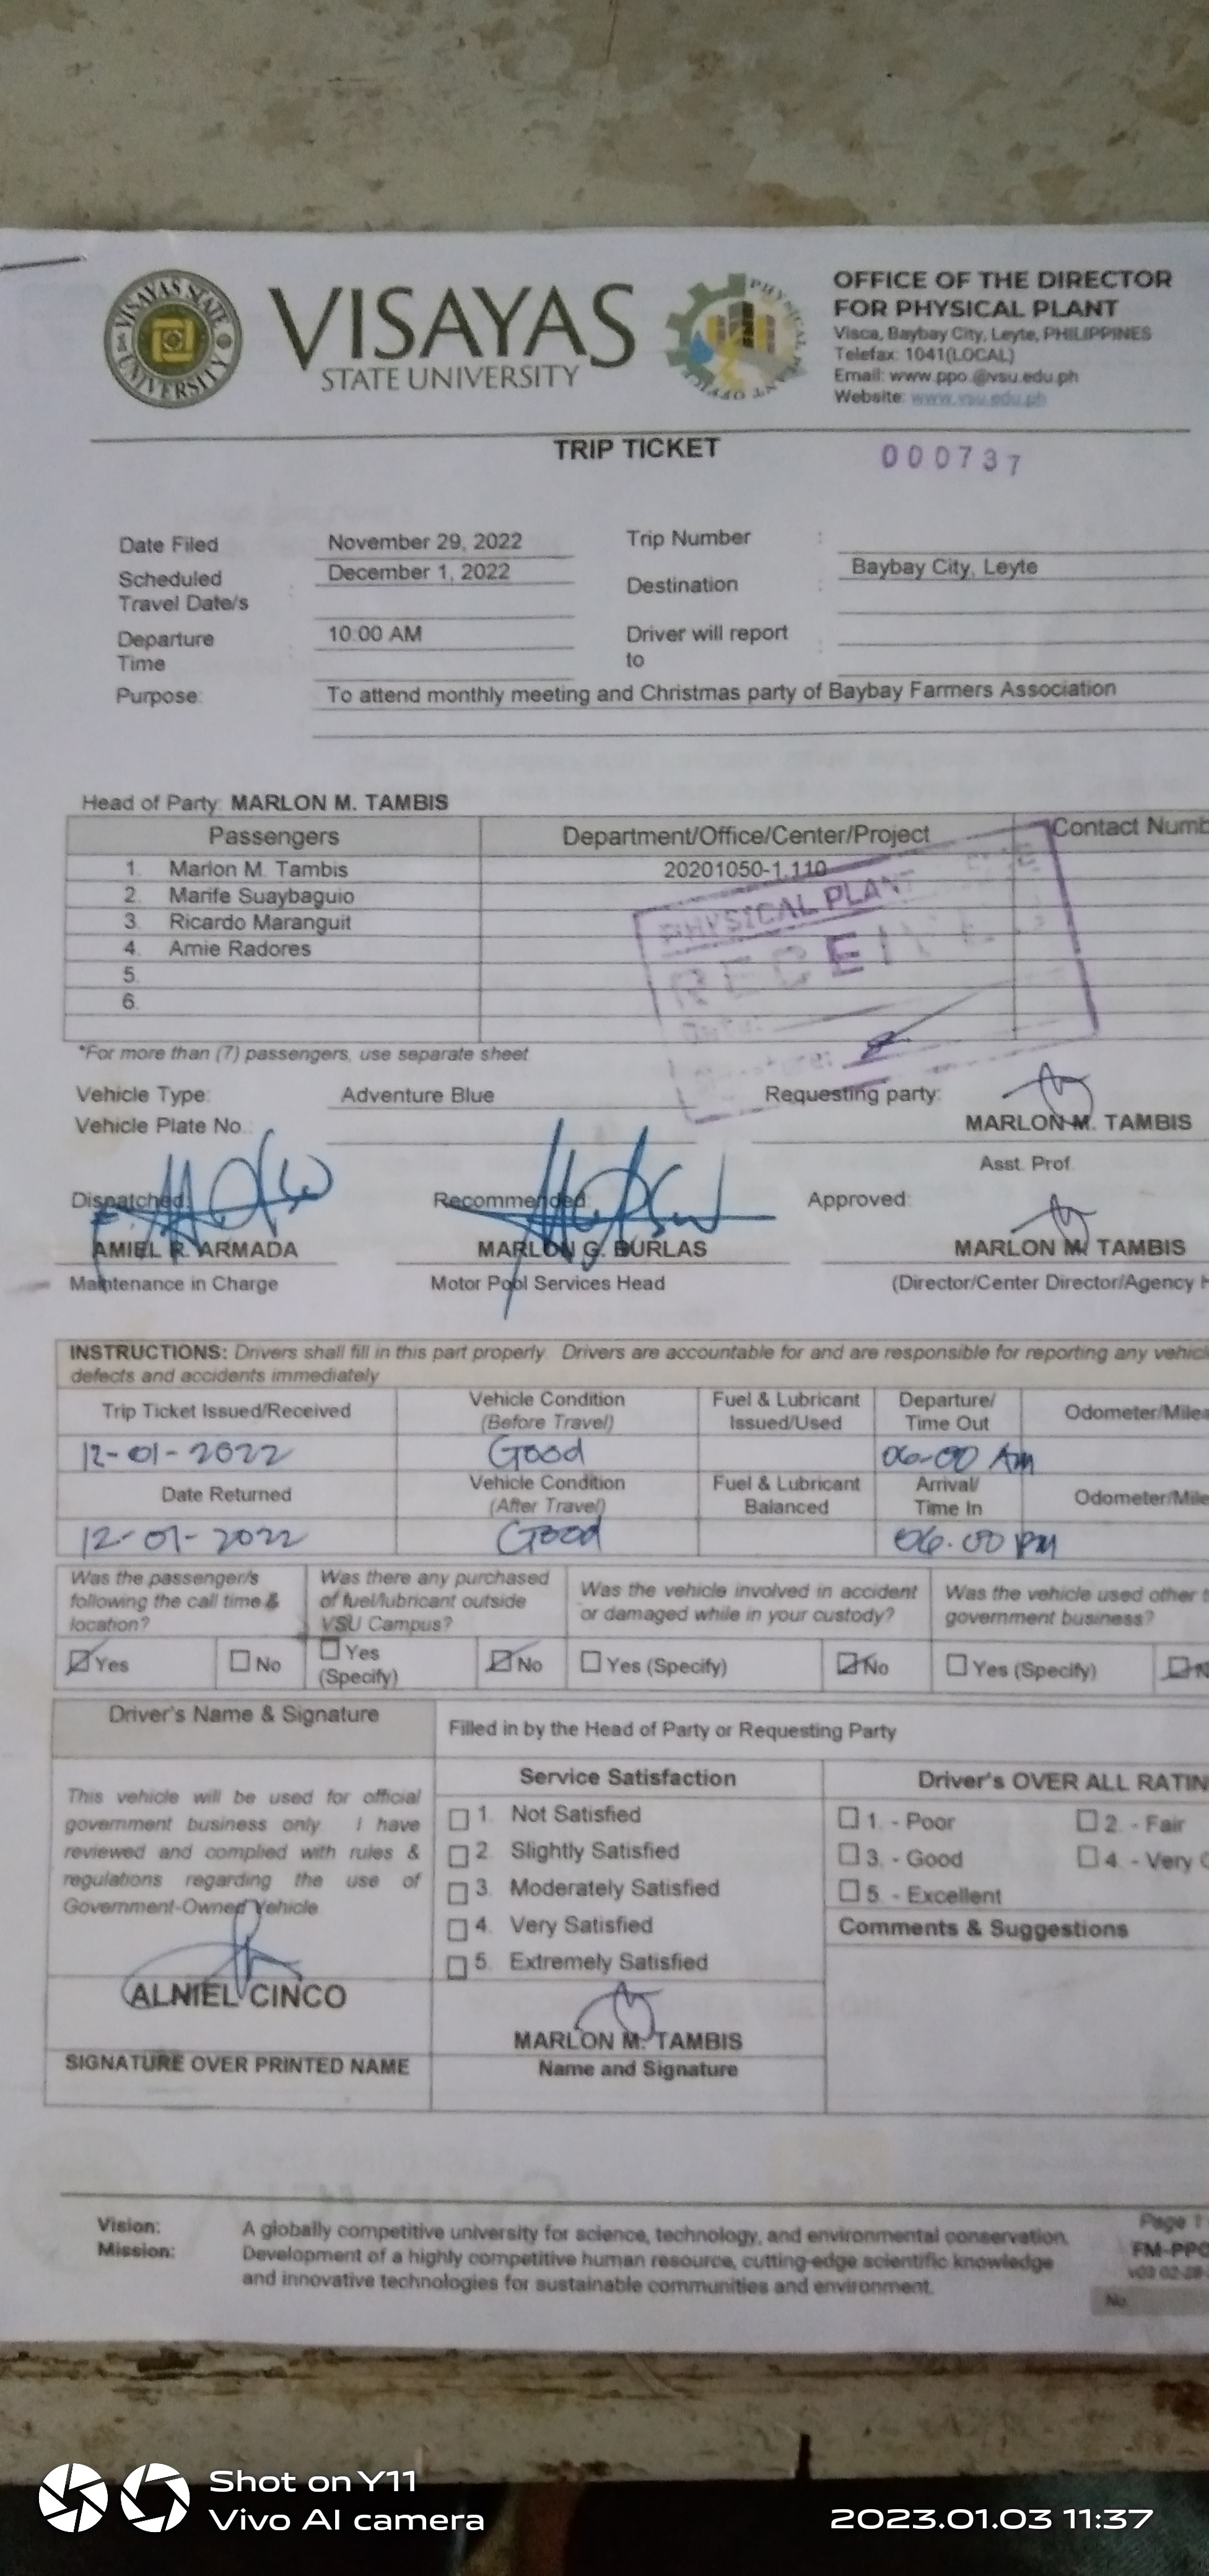 VISAYAS STATE UNIVERSITY
VISAYAS
STATE UNIVERSITY
PHYSICAL PLANT OFFICE
OFFICE OF THE DIRECTOR
FOR PHYSICAL PLANT
Visca, Baybay City, Leyte, PHILIPPINES
Telefax: 1041(LOCAL)
Email: www.ppo.@vsu.edu.ph
Website: www.vsu.edu.ph
TRIP TICKET 000737
Date Filed November 29, 2022 Trip Number :
Scheduled Travel Date/s : December 1, 2022 Destination Baybay City, Leyte
Departure Time : 10:00 AM Driver will report to :
Purpose: To attend monthly meeting and Christmas party of Baybay Farmers Association
Head of Party: MARLON M. TAMBIS
Passengers Department/Office/Center/Project Contact Numb
1. Marlon M. Tambis 20201050-1.110
2. Marife Suaybaguio
3. Ricardo Maranguit
4. Amie Radores
5.
6.
PHYSICAL PLANT
RECEIVED
Date:
*For more than (7) passengers, use separate sheet
Vehicle Type: Adventure Blue Requesting party:
Vehicle Plate No.: MARLON M. TAMBIS
Asst. Prof.
Dispatched: Recommended: Approved:
AMIEL R. ARMADA MARLON G. BURLAS MARLON M. TAMBIS
Maintenance in Charge Motor Pool Services Head (Director/Center Director/Agency H
INSTRUCTIONS: Drivers shall fill in this part properly. Drivers are accountable for and are responsible for reporting any vehicl
defects and accidents immediately
Trip Ticket Issued/Received Vehicle Condition (Before Travel) Fuel & Lubricant Issued/Used Departure/ Time Out Odometer/Milea
12-01-2022 Good 06-00 Am
Date Returned Vehicle Condition (After Travel) Fuel & Lubricant Balanced Arrival/ Time In Odometer/Mile
12-01-2022 Good 06.00 PM
Was the passenger/s following the call time & location? Was there any purchased of fuel/lubricant outside VSU Campus? Was the vehicle involved in accident or damaged while in your custody? Was the vehicle used other t government business?
Yes No Yes (Specify) No Yes (Specify) No Yes (Specify) N
Driver's Name & Signature Filled in by the Head of Party or Requesting Party
Service Satisfaction Driver's OVER ALL RATIN
This vehicle will be used for official
government business only. I have
reviewed and complied with rules &
regulations regarding the use of
Government-Owned Vehicle
1. Not Satisfied
2. Slightly Satisfied
3. Moderately Satisfied
4. Very Satisfied
5. Extremely Satisfied
1. - Poor 2. - Fair
3. - Good 4. - Very G
5. - Excellent
Comments & Suggestions
ALNIEL CINCO
SIGNATURE OVER PRINTED NAME
MARLON M. TAMBIS
Name and Signature
Vision: A globally competitive university for science, technology, and environmental conservation.
Mission: Development of a highly competitive human resource, cutting-edge scientific knowledge
and innovative technologies for sustainable communities and environment.
Page 1
FM-PPO
v03 02-28-
No.
Shot on Y11
Vivo AI camera
2023.01.03 11:37